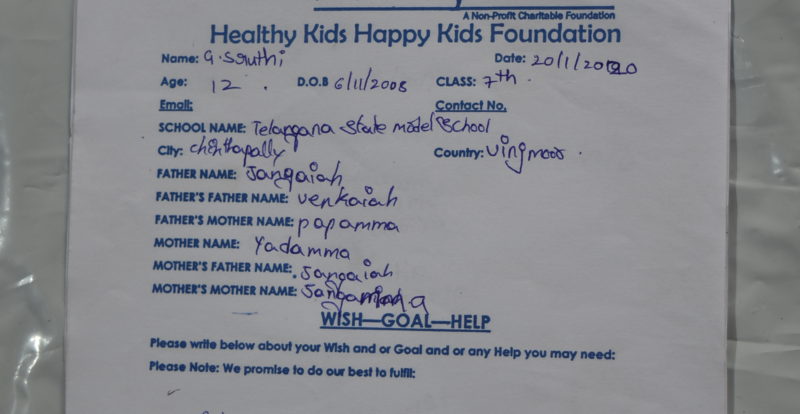 A Non-Profit Charitable Foundation
Healthy Kids Happy Kids Foundation
Name: G. Sruthi Date: 20/1/2020
Age: 12 . D.O.B 6/11/2008 CLASS: 7th .
Email: Contact No.
SCHOOL NAME: Telangana State model School
City: chinthapally Country: vingmoor .
FATHER NAME: Jangaiah
FATHER'S FATHER NAME: venkaiah
FATHER'S MOTHER NAME: papamma
MOTHER NAME: Yadamma
MOTHER'S FATHER NAME: Jangaiah
MOTHER'S MOTHER NAME:
WISH—GOAL—HELP
Please write below about your Wish and or Goal and or any Help you may need:
Please Note: We promise to do our best to fulfil: